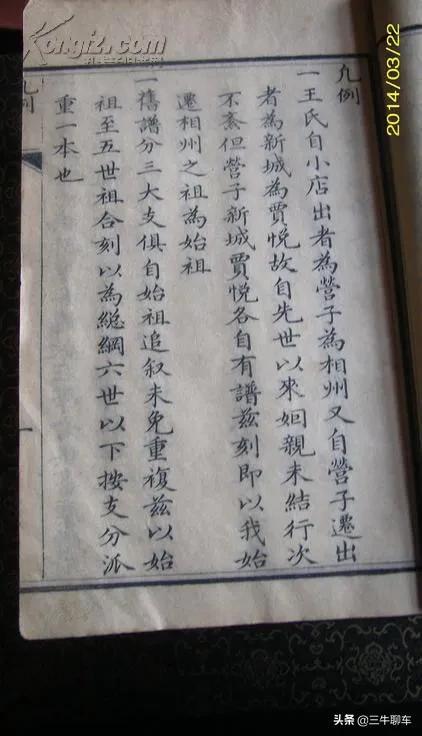 凡例
一王氏自小店出者為營子為相州又自營子遷出
者為新城為賈悅故自先世以來姻親未結行次
不紊但營子新城賈悅各自有譜茲刻即以我始
遷相州之祖為始祖
一舊譜分三大支俱自始祖追叙未免重複茲以始
祖至五世祖合刻以為總綱六世以下按支分派
重一本也
凡例
一
Kongfz.com
2014/03/22
头条 @三牛聊车